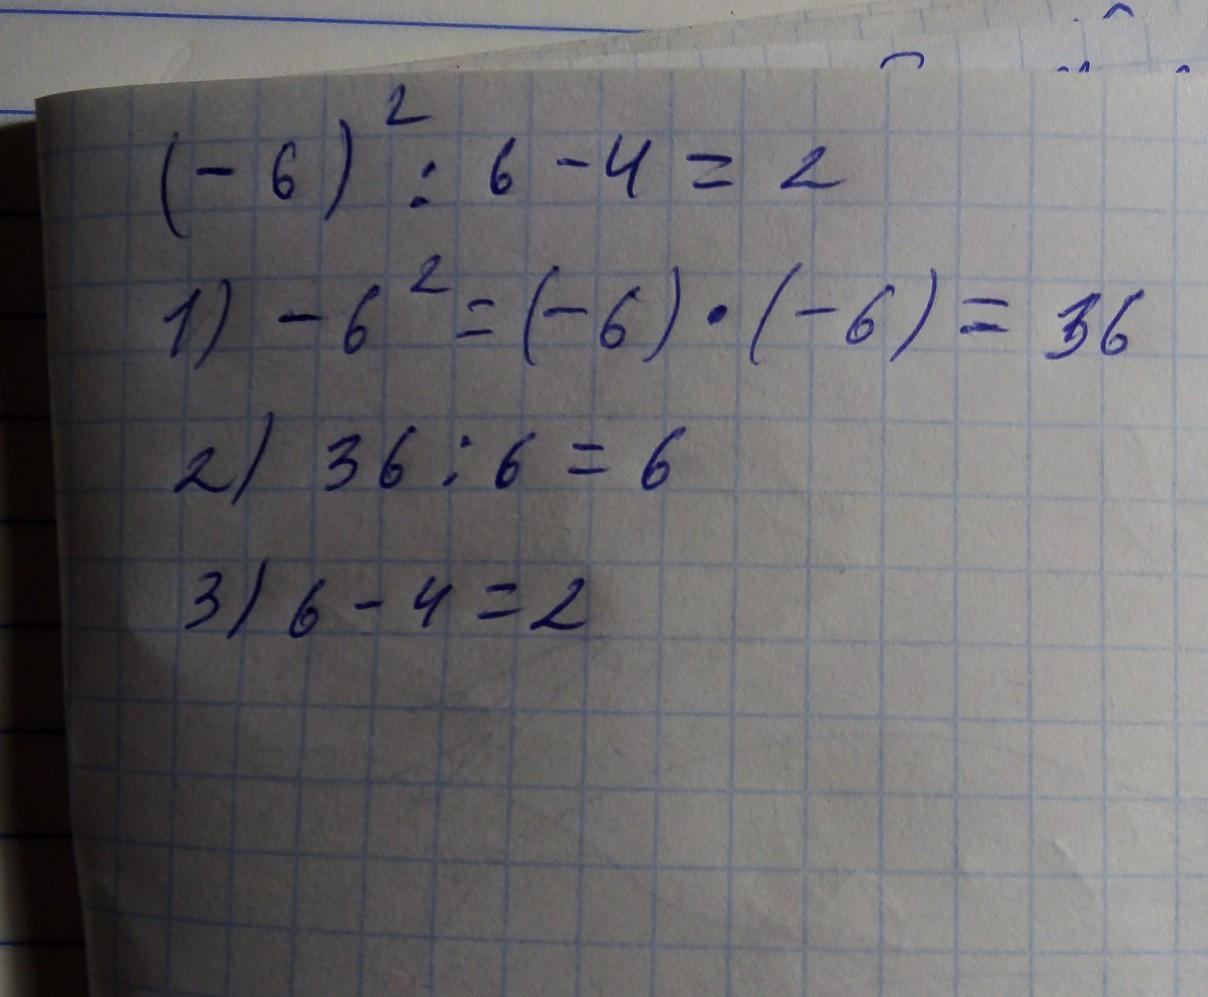 (-6)² : 6 - 4 = 2
1) -6² = (-6) • (-6) = 36
2) 36 : 6 = 6
3) 6 - 4 = 2